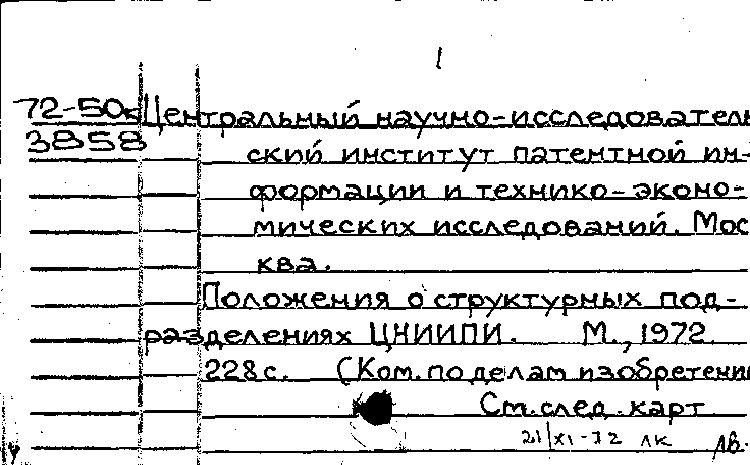 1
72-50к Центральный научно-исследователь
3858 ский институт патентной ин-
формации и технико-эконо-
мических исследований. Мос
ква.
Положения о структурных под-
разделениях ЦНИИПИ. М., 1972.
228с. (Ком. по делам изобретени
См. след. карт
21/XI-72 лк лв.